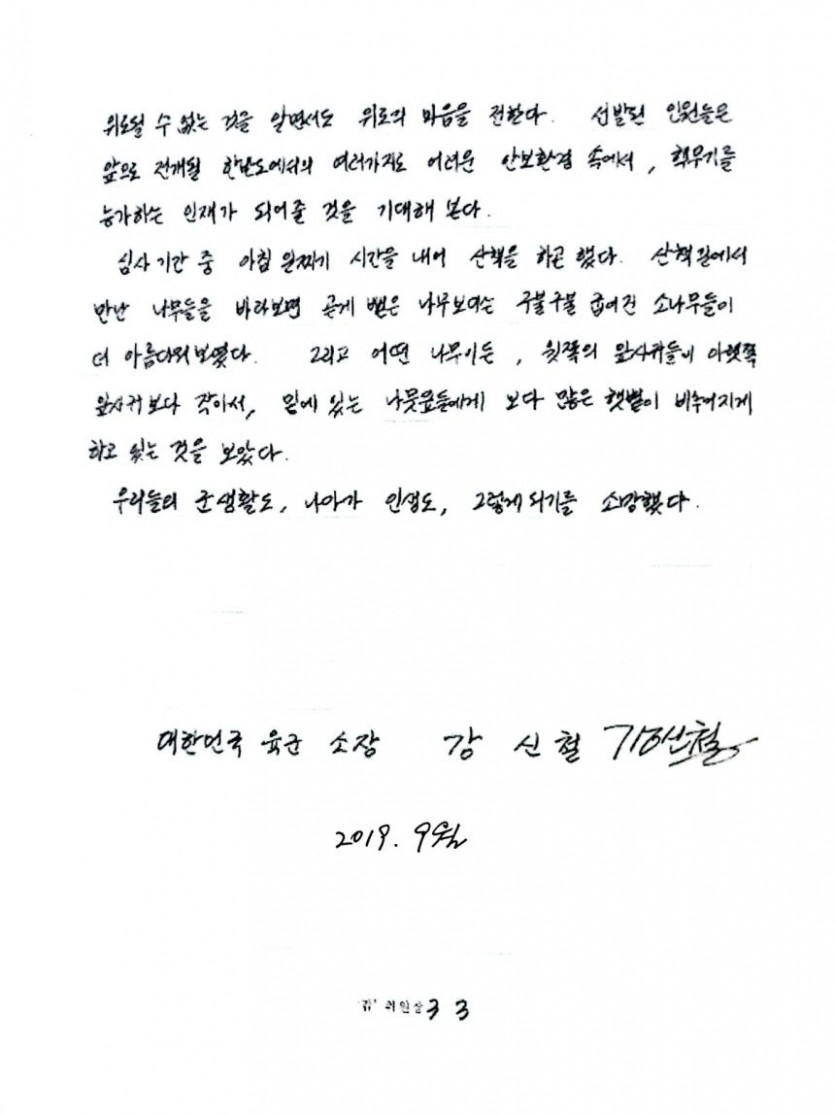 위로될 수 없는 것을 알면서도 위로의 마음을 전한다. 선발된 인원들은
앞으로 전개될 한반도에서의 여러가지로 어려운 안보환경 속에서, 핵무기를
능가하는 인재가 되어줄 것을 기대해 본다.
심사 기간 중 아침 일찍이 시간을 내어 산책을 하곤 했다. 산책길에서
만난 나무들을 바라보면 곧게 뻗은 나무보다는 구불구불 굽어진 소나무들이
더 아름다워 보였다. 그리고 어떤 나무이든, 윗쪽의 잎사귀들이 아랫쪽
잎사귀보다 작아서, 밑에 있는 나뭇잎들에게 보다 많은 햇볕이 비추어지게
하고 있는 것을 보았다.
우리들의 군생활도, 나아가 인생도, 그렇게 되기를 소망했다.
대한민국 육군 소장 강 신 철 강신철
2019. 9월
'갑' 위원장 3 3